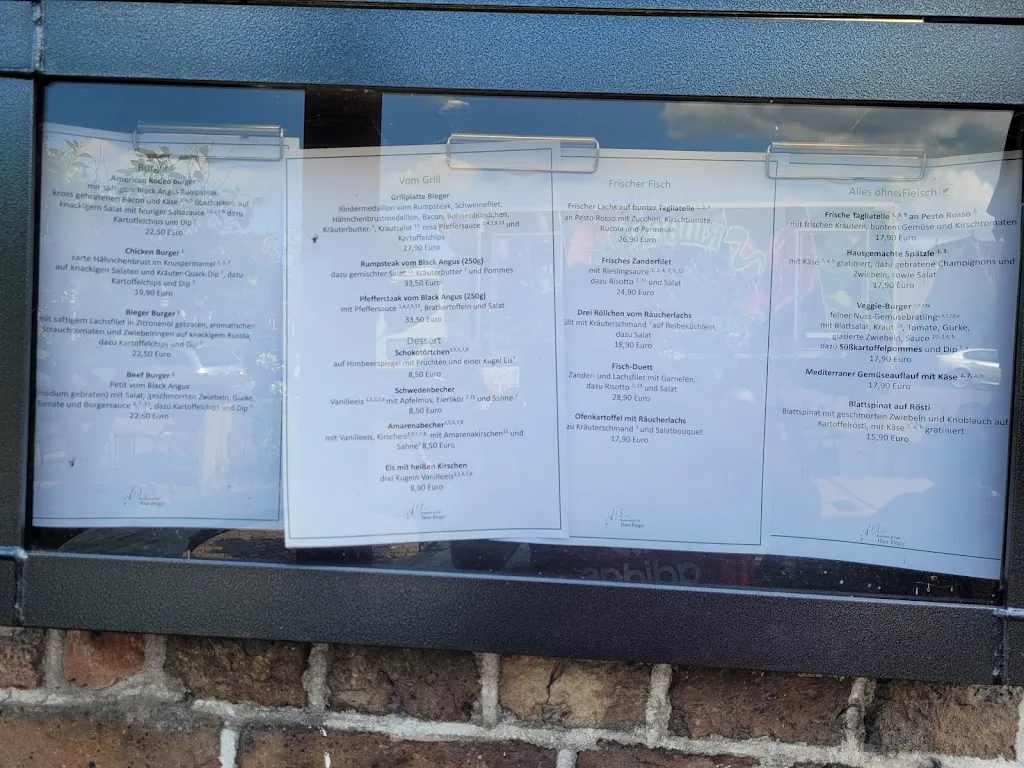 Burger
American Rodeo Burger
mit saftigem Black Angus Rumpsteak,
kross gebratenen Bacon und Käse überbacken, auf
knackigem Salat mit feuriger Salsasauce dazu
Kartoffelchips und Dip
22,50 Euro
Chicken Burger
zarte Hähnchenbrust im Knuspermantel
auf knackigen Salaten und Kräuter-Quark-Dip, dazu
Kartoffelchips und Dip
19,90 Euro
Bieger Burger
mit saftigem Lachsfilet in Zitronenöl gebraten, aromatischen
Strauchtomaten und Zwiebelringen auf knackigem Rucola,
dazu Kartoffelchips und Dip
22,50 Euro
Beef Burger
Petit vom Black Angus
(medium gebraten) mit Salat, geschmorten Zwiebeln, Gurke,
Tomate und Burgersauce, dazu Kartoffelchips und Dip
22,50 Euro
Haus Bieger
Vom Grill
Grillplatte Bieger
Rindermedaillon vom Rumpsteak, Schweinefilet,
Hähnchenbrustmedaillon, Bacon, Bohnenbündchen,
Kräuterbutter, Krautsalat rosa Pfeffersauce und
Kartoffelchips
27,90 Euro
Rumpsteak vom Black Angus (250g)
dazu gemischter Salat Kräuterbutter und Pommes
33,50 Euro
Pfeffersteak vom Black Angus (250g)
mit Pfeffersauce, Bratkartoffeln und Salat
33,50 Euro
Dessert
Schokotörtchen
auf Himbeerspiegel mit Früchten und einer Kugel Eis
8,50 Euro
Schwedenbecher
Vanilleeis mit Apfelmus, Eierlikör und Sahne
8,50 Euro
Amarenabecher
mit Vanilleeis, Kirscheis mit Amarenakirschen und
Sahne 8,50 Euro
Eis mit heißen Kirschen
drei Kugeln Vanilleeis
8,90 Euro
Haus Bieger
Frischer Fisch
Frischer Lachs auf bunter Tagliatelle
an Pesto Rosso mit Zucchini, Kirschtomate,
Rucola und Parmesan
26,90 Euro
Frisches Zanderfilet
mit Rieslingsauce
dazu Risotto und Salat
24,90 Euro
Drei Röllchen vom Räucherlachs
üllt mit Kräuterschmand auf Reibeküchlein,
dazu Salat
18,90 Euro
Fisch-Duett
Zander- und Lachsfilet mit Garnelen,
dazu Risotto und Salat
28,90 Euro
Ofenkartoffel mit Räucherlachs
zu Kräuterschmand und Salatbouquet
17,90 Euro
Haus Bieger
Alles ohne Fleisch
Frische Tagliatelle an Pesto Rosso
mit frischen Kräutern, buntem Gemüse und Kirschtomaten
17,90 Euro
Hausgemachte Spätzle
mit Käse gratiniert, dazu gebratene Champignons und
Zwiebeln, sowie Salat
17,90 Euro
Veggie-Burger
feiner Nuss-Gemüsebratling
mit Blattsalat, Kraut, Tomate, Gurke,
glasierte Zwiebeln, Sauce
dazu Süßkartoffelpommes und Dip
17,90 Euro
Mediterraner Gemüseauflauf mit Käse
17,90 Euro
Blattspinat auf Rösti
Blattspinat mit geschmorten Zwiebeln und Knoblauch auf
Kartoffelrösti, mit Käse gratiniert
15,90 Euro
Haus Bieger
adidas